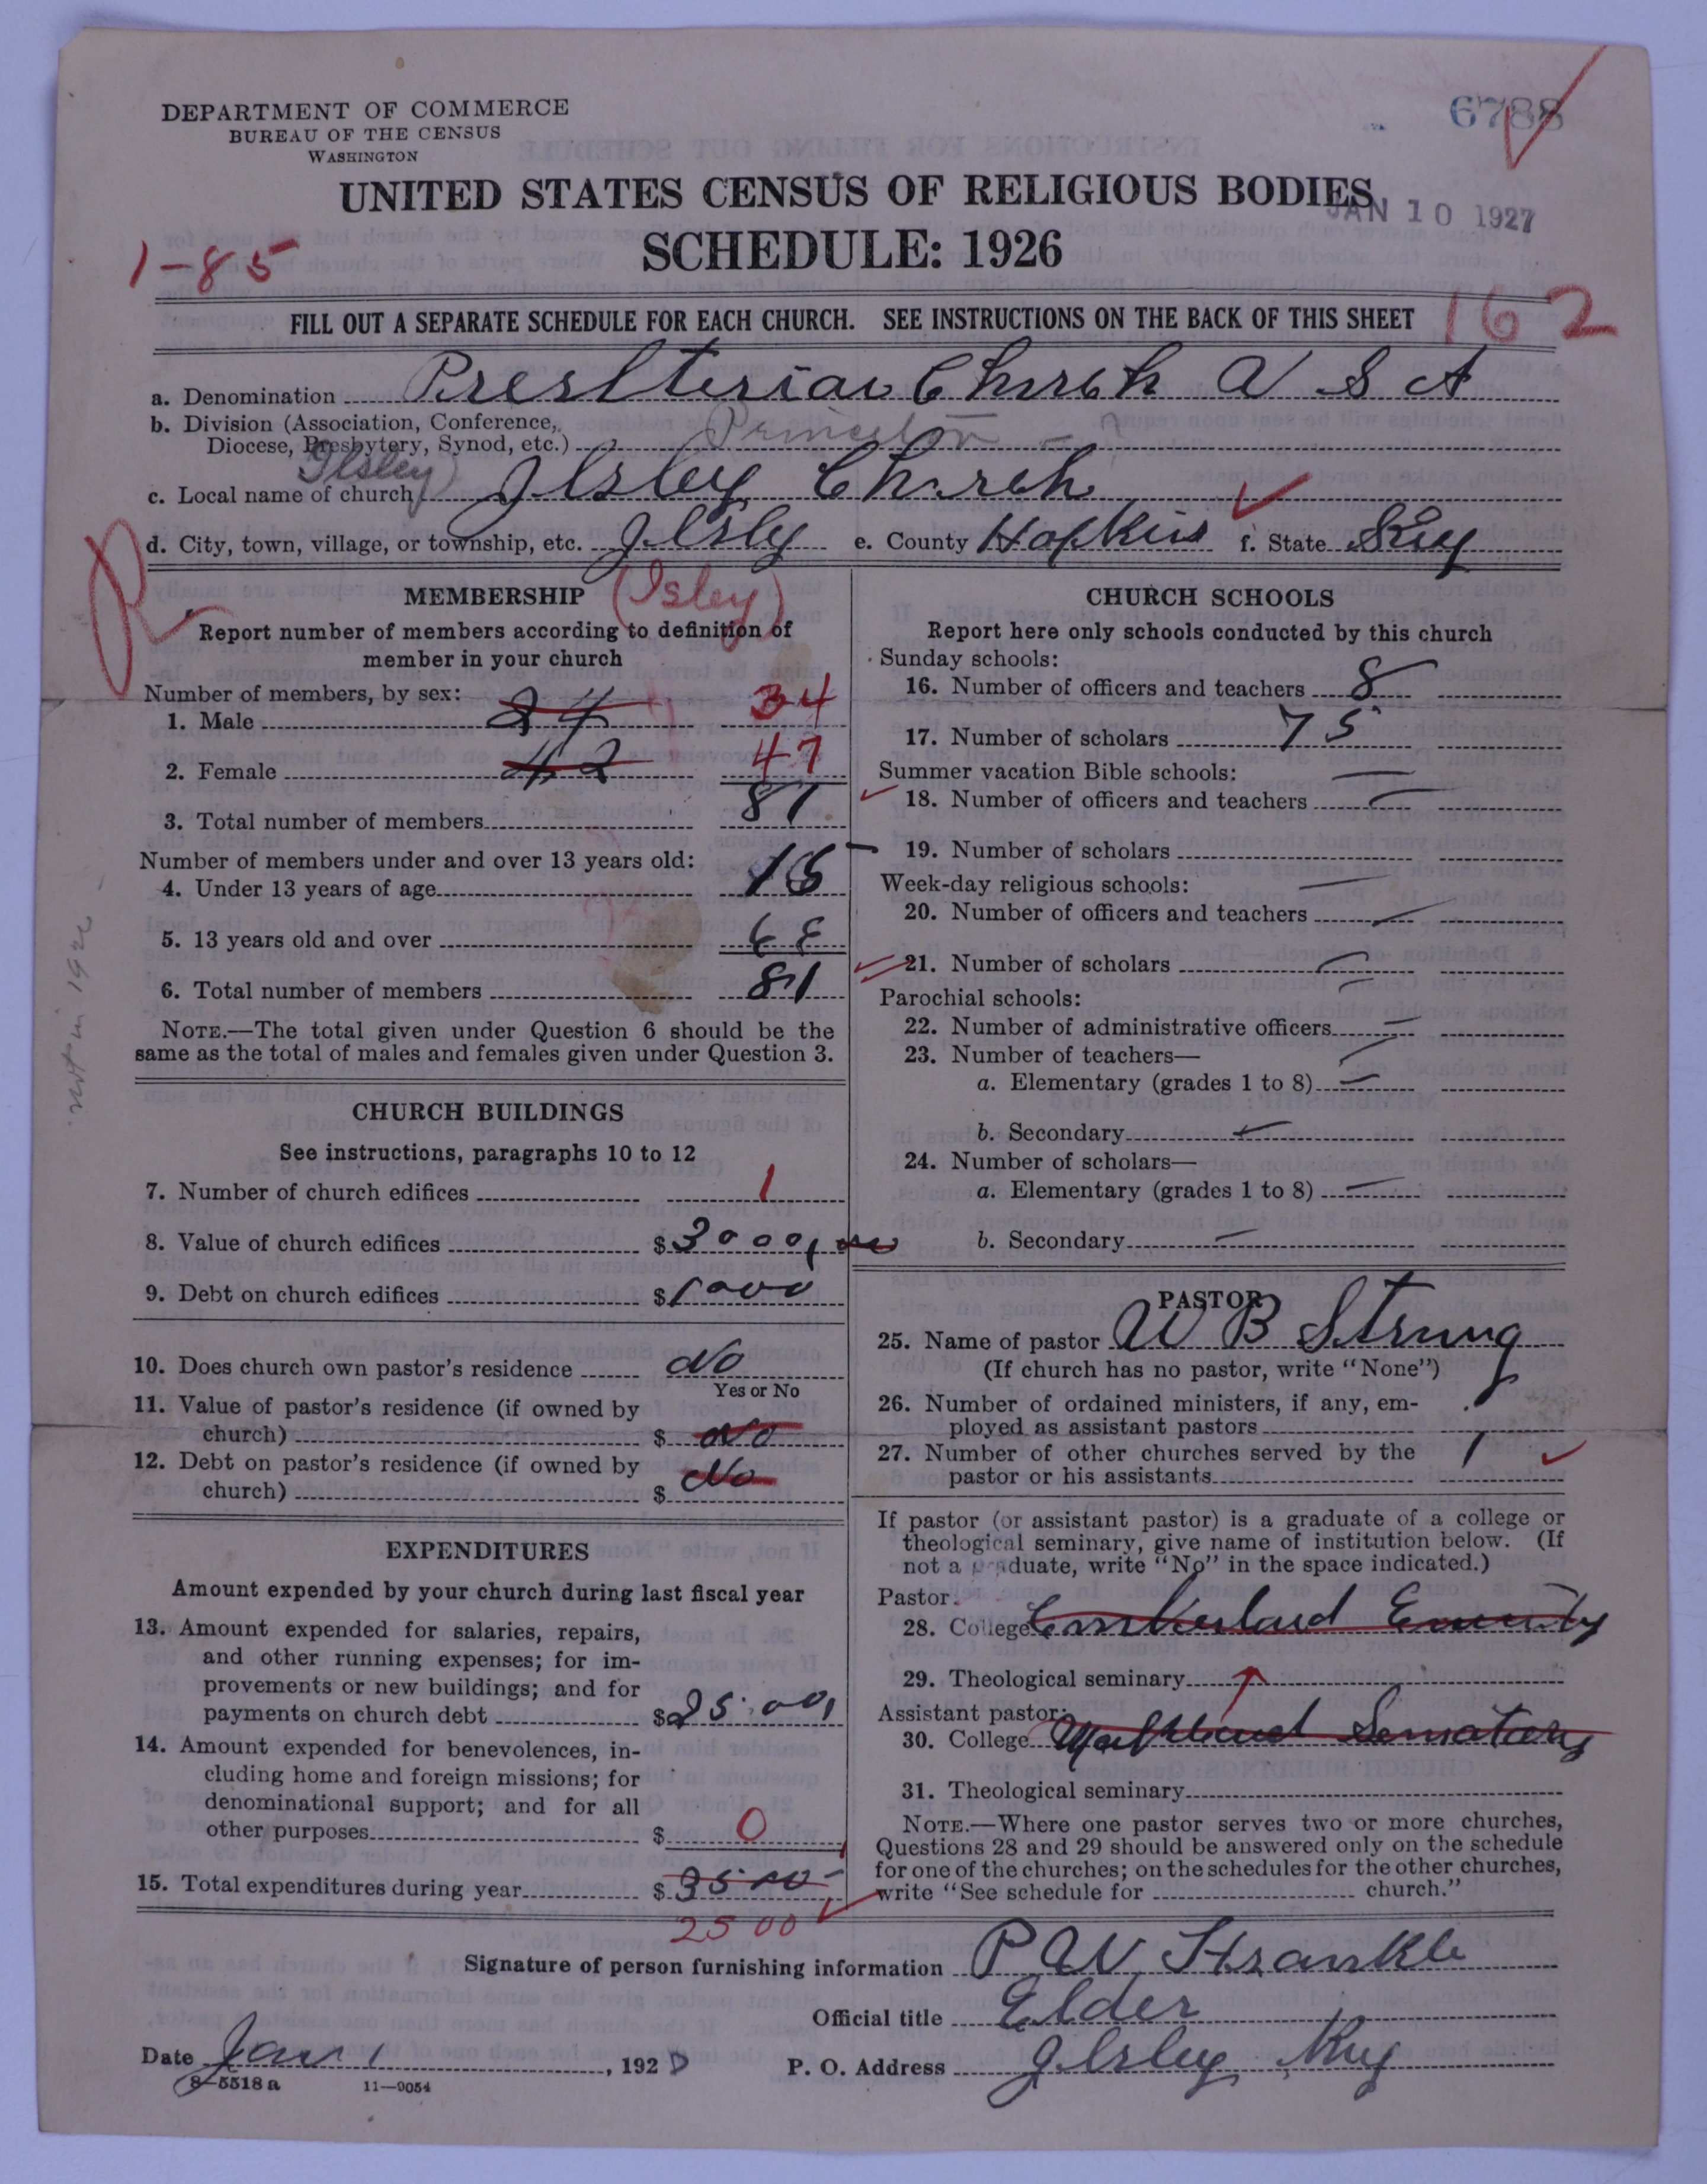 6788
DEPARTMENT OF COMMERCE
BUREAU OF THE CENSUS
WASHINGTON
UNITED STATES CENSUS OF RELIGIOUS BODIES
JAN 10 1927
SCHEDULE: 1926
1-85
FILL OUT A SEPARATE SCHEDULE FOR EACH CHURCH. SEE INSTRUCTIONS ON THE BACK OF THIS SHEET
162
a. Denomination Preslterian Church U S A
b. Division (Association, Conference,
Diocese, Presbytery, Synod, etc.) Princeton - ?
Ilsley
c. Local name of church Ilsley Church
d. City, town, village, or township, etc. Ilsly e. County Hopkins f. State Ky
MEMBERSHIP (Isley)
Report number of members according to definition of
member in your church
Number of members, by sex:
1. Male 34
2. Female 42 47
3. Total number of members 81
Number of members under and over 13 years old:
4. Under 13 years of age
5. 13 years old and over
6. Total number of members 81
NOTE.—The total given under Question 6 should be the
same as the total of males and females given under Question 3.
not in 1926
CHURCH BUILDINGS
See instructions, paragraphs 10 to 12
7. Number of church edifices 1
8. Value of church edifices $3000,00
9. Debt on church edifices $1000
10. Does church own pastor's residence No
Yes or No
11. Value of pastor's residence (if owned by
church) $ No
12. Debt on pastor's residence (if owned by
church) $ No
EXPENDITURES
Amount expended by your church during last fiscal year
13. Amount expended for salaries, repairs,
and other running expenses; for im-
provements or new buildings; and for
payments on church debt $25.00
14. Amount expended for benevolences, in-
cluding home and foreign missions; for
denominational support; and for all
other purposes $ 0
15. Total expenditures during year $
25 00
CHURCH SCHOOLS
Report here only schools conducted by this church
Sunday schools:
16. Number of officers and teachers 8
17. Number of scholars 75
Summer vacation Bible schools:
18. Number of officers and teachers
19. Number of scholars
Week-day religious schools:
20. Number of officers and teachers
21. Number of scholars
Parochial schools:
22. Number of administrative officers
23. Number of teachers—
a. Elementary (grades 1 to 8)
b. Secondary
24. Number of scholars—
a. Elementary (grades 1 to 8)
b. Secondary
PASTOR
25. Name of pastor W B Strung
(If church has no pastor, write "None")
26. Number of ordained ministers, if any, em-
ployed as assistant pastors
27. Number of other churches served by the 1
pastor or his assistants
If pastor (or assistant pastor) is a graduate of a college or
theological seminary, give name of institution below. (If
not a graduate, write "No" in the space indicated.)
Pastor:
28. College
29. Theological seminary
Assistant pastor:
30. College
31. Theological seminary
NOTE.—Where one pastor serves two or more churches,
Questions 28 and 29 should be answered only on the schedule
for one of the churches; on the schedules for the other churches,
write "See schedule for church."
Signature of person furnishing information P W
Official title Elder
Date Jan 1, 192 P. O. Address Ilsley Ky
8—5518 a 11—9054